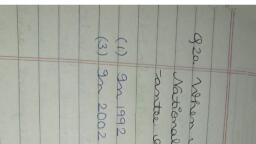 Q2a When
National
antee
(1) In 1992
(3) In 2002